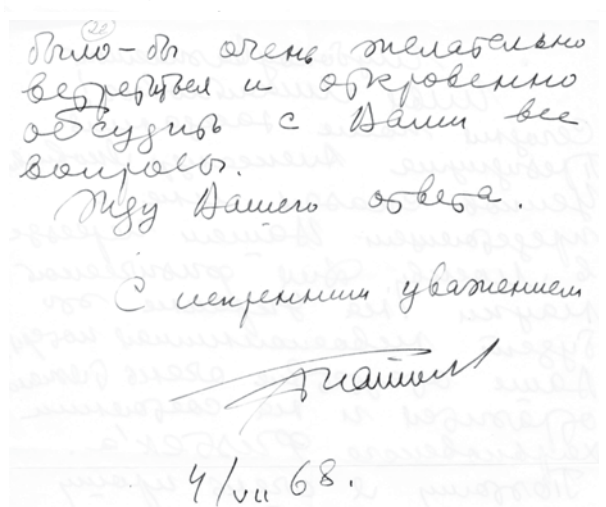 было-бы очень желательно
встретиться и откровенно
обсудить с Вами все
вопросы.
Жду Вашего ответа.
С искренним уважением
4/VII 68.